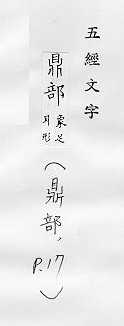 五經文字
鼎部 象足耳形(鼎部, P.17)